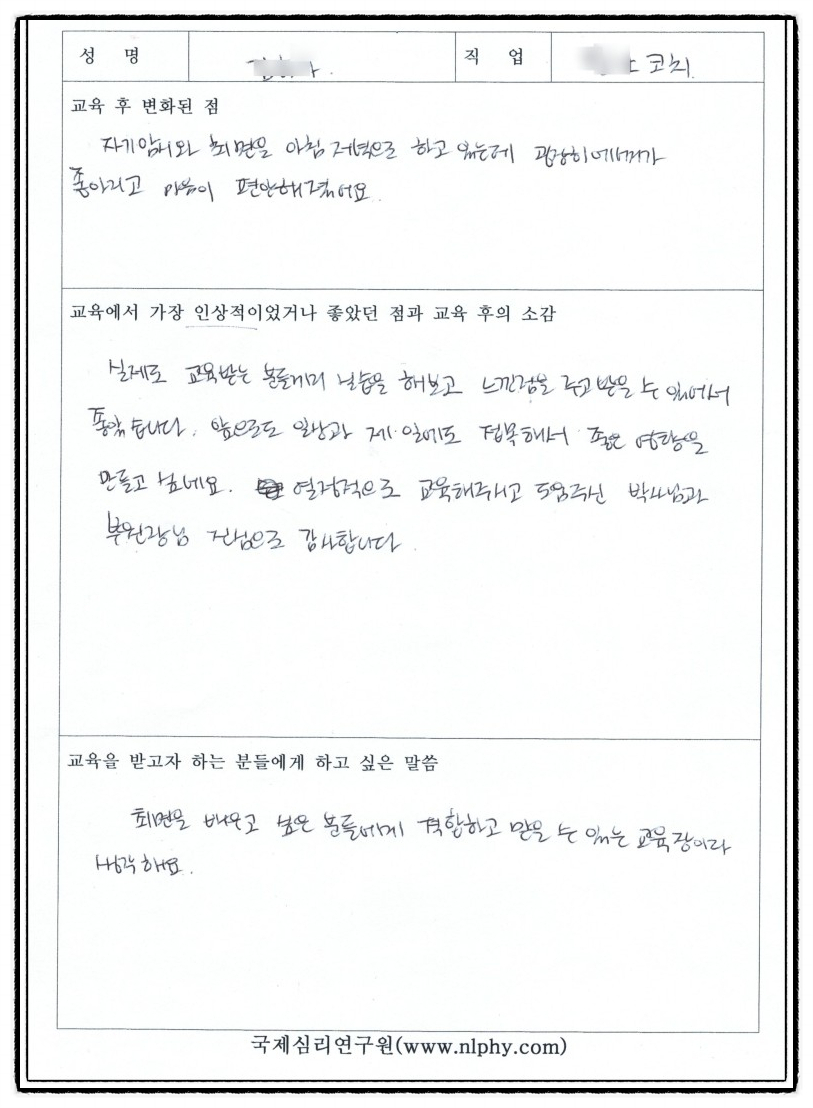 성 명 직 업 코치
교육 후 변화된 점
자기암시와 최면을 아침 저녁으로 하고 있는데 굉장히 에너지가
좋아지고 마음이 편안해졌어요.
교육에서 가장 인상적이었거나 좋았던 점과 교육 후의 소감
실제로 교육받는 분들끼리 실습을 해보고 느낀점을 주고 받을 수 있어서
좋았습니다. 앞으로도 일상과 제 일에도 접목해서 좋은 영향을
만들고 싶네요. 열정적으로 교육해주시고 도움주신 박사님과
부원장님 진심으로 감사합니다.
교육을 받고자 하는 분들에게 하고 싶은 말씀
최면을 배우고 싶은 분들에게 적합하고 믿을 수 있는 교육장이라
생각해요.
국제심리연구원(www.nlphy.com)